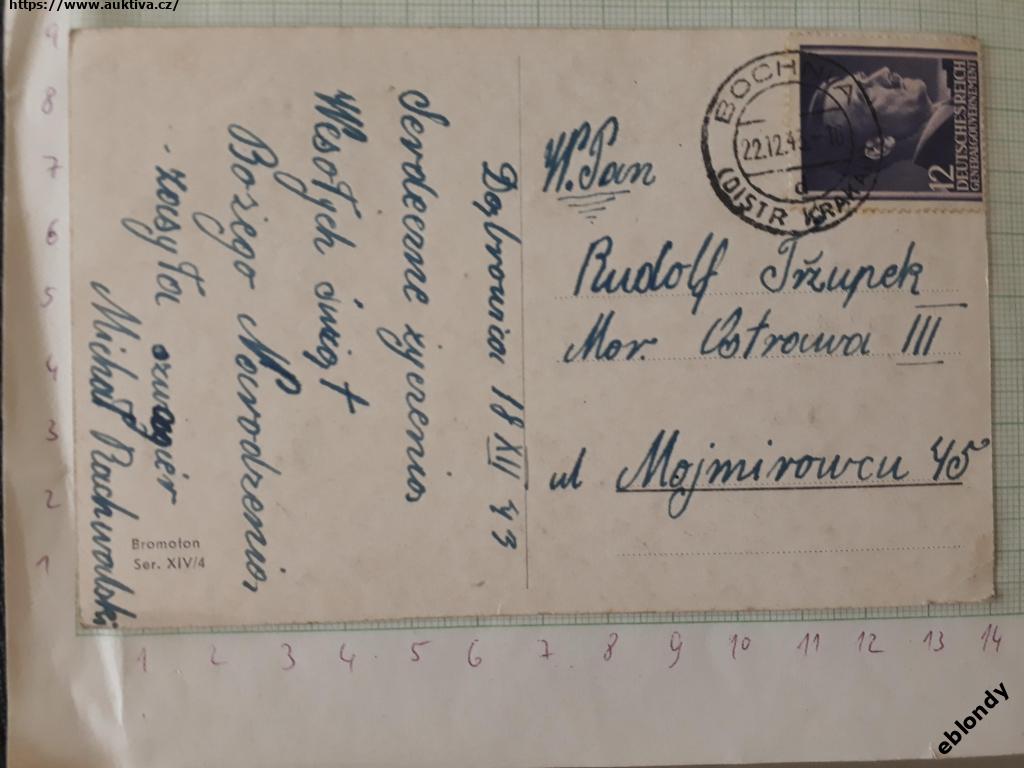 https://www.auktiva.cz/
Dąbrowica 18 XII 43
Serdeczne życzenia
Wesołych świąt
Bożego Narodzenia
- zasyła szwagier
Michał Rachwalski
Bromoton
Ser. XIV/4
BOCHNIA
22.12.43
(DISTR. KRAKAU)
12
DEUTSCHES REICH
GENERALGOUVERNEMENT
W.Pan
Rudolf Tržupek
Mor. Ostrawa III
ul Mojmirowcu 45
9
8
7
6
5
4
3
2
1
1 2 3 4 5 6 7 8 9 10 11 12 13 14
eblondy